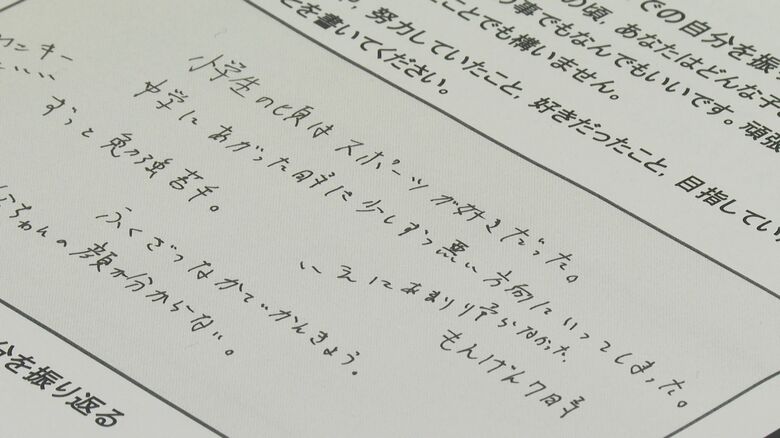 での自分を振
の頃、あなたはどんな子
の事でもなんでもいいです。頑張
ことでも構いません。
努力していたこと、好きだったこと、目指してい
とを書いてください。
小学生の頃は スポーツが好きだった。
中学にあがった時に少しずつ悪い方向にいってしまった。
ンキー
ずっと勉強苦手。
いえにあまり帰らなかった、
もんげん7時
ふくざつなかていかんきょう。
ちゃんの顔が分からない。
分を振り返る